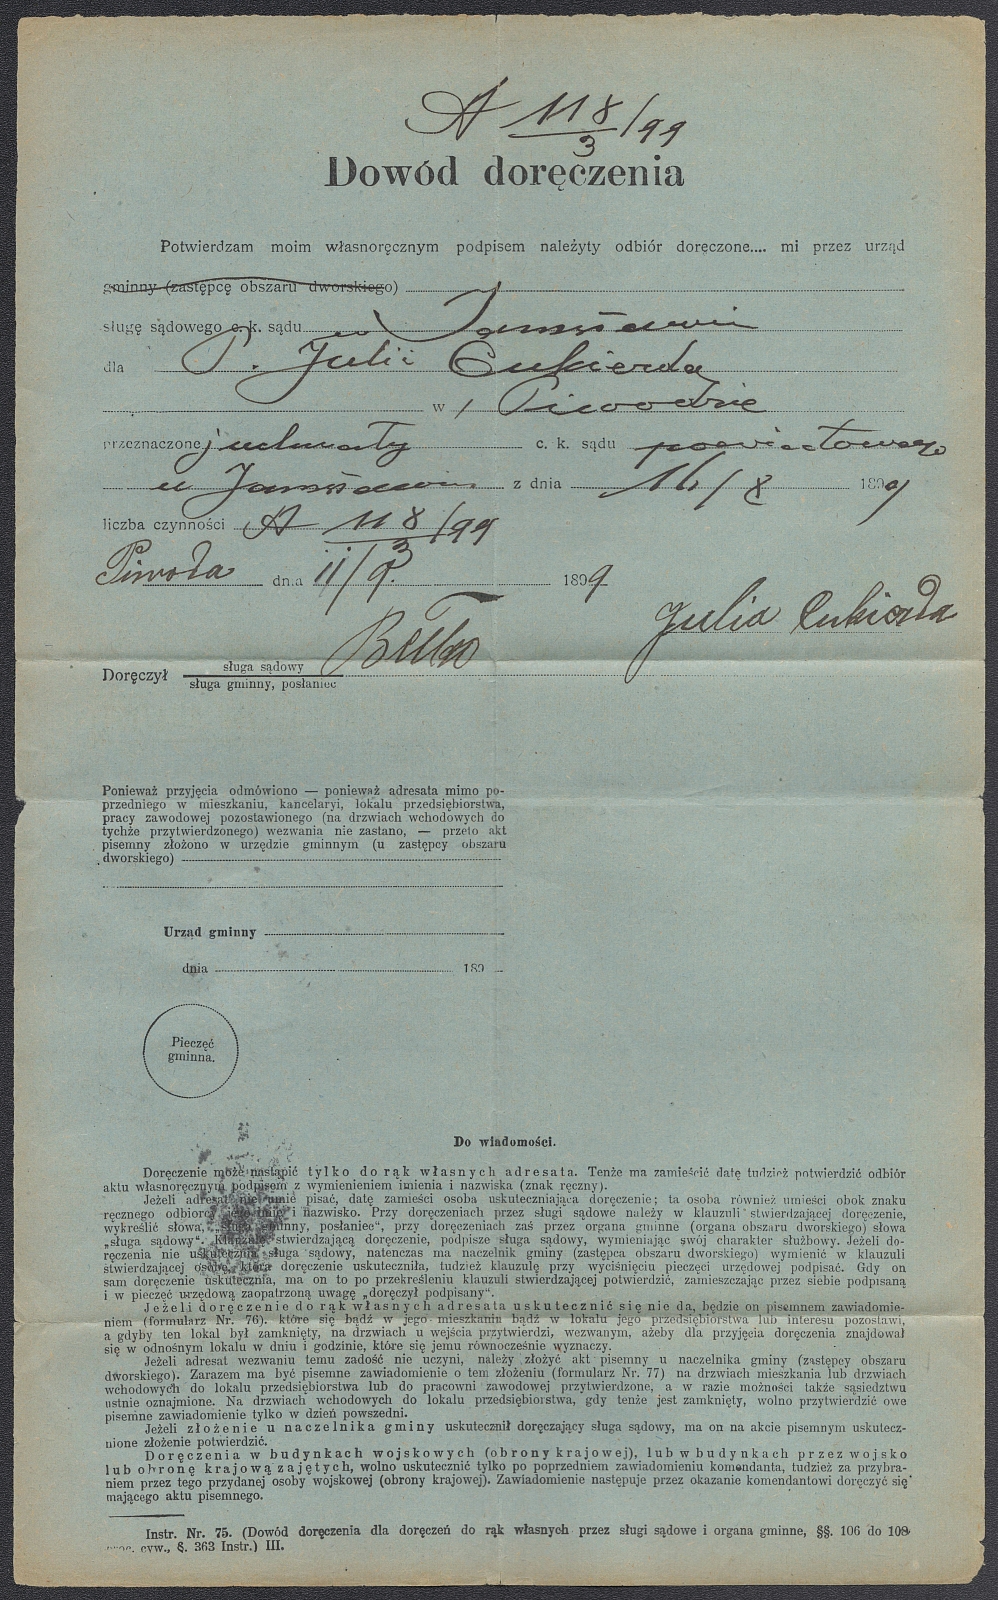 A 118/3/99
Dowód doręczenia
Potwierdzam moim własnoręcznym podpisem należyty odbiór doręczone.... mi przez urząd
gminny (zastępcę obszaru dworskiego)
sługę sądowego c. k. sądu w Jarosławiu
dla P. Julii Cukierda
w Piwodzie
przeznaczone j uchwały c. k. sądu powiatowego
w Jarosławiu z dnia 16/8 1899
liczba czynności A 118/3/99
Piwoda dnia 11/9. 1899
Julia Cukierda
Doręczył sługa sądowy
sługa gminny, posłaniec
Ponieważ przyjęcia odmówiono — ponieważ adresata mimo po-
przedniego w mieszkaniu, kancelaryi, lokalu przedsiębiorstwa,
pracy zawodowej pozostawionego (na drzwiach wchodowych do
tychże przytwierdzonego) wezwania nie zastano, — przeto akt
pisemny złożono w urzędzie gminnym (u zastępcy obszaru
dworskiego)
Urząd gminny
dnia 189
Pieczęć
gminna.
Do wiadomości.
Doręczenie może nastąpić tylko do rąk własnych adresata. Tenże ma zamieścić datę tudzież potwierdzić odbiór
aktu własnoręcznym podpisem z wymienieniem imienia i nazwiska (znak ręczny).
Jeżeli adresat nie umie pisać, datę zamieści osoba uskuteczniająca doręczenie; ta osoba również umieści obok znaku
ręcznego odbiorcy jego imię i nazwisko. Przy doręczeniach przez sługi sądowe należy w klauzuli stwierdzającej doręczenie,
wykreślić słowa, „sługa gminny, posłaniec“, przy doręczeniach zaś przez organa gminne (organa obszaru dworskiego) słowa
„sługa sądowy“. Klauzulę stwierdzającą doręczenie, podpisze sługa sądowy, wymieniając swój charakter służbowy. Jeżeli do-
ręczenia nie uskutecznia sługa sądowy, natenczas ma naczelnik gminy (zastępca obszaru dworskiego) wymienić w klauzuli
stwierdzającej osobę, która doręczenie uskuteczniła, tudzież klauzulę przy wyciśnięciu pieczęci urzędowej podpisać. Gdy on
sam doręczenie uskutecznia, ma on to po przekreśleniu klauzuli stwierdzającej potwierdzić, zamieszczając przez siebie podpisaną
i w pieczęć urzędową zaopatrzoną uwagę „doręczył podpisany“.
Jeżeli doręczenie do rąk własnych adresata uskutecznić się nie da, będzie on pisemnem zawiadomie-
niem (formularz Nr. 76). które się bądź w jego mieszkaniu bądź w lokalu jego przedsiębiorstwa lub interesu pozostawi,
a gdyby ten lokal był zamknięty, na drzwiach u wejścia przytwierdzi, wezwanym, ażeby dla przyjęcia doręczenia znajdował
się w odnośnym lokalu w dniu i godzinie, które się jemu równocześnie wyznaczy.
Jeżeli adresat wezwaniu temu zadość nie uczyni, należy złożyć akt pisemny u naczelnika gminy (zastępcy obszaru
dworskiego). Zarazem ma być pisemne zawiadomienie o tem złożeniu (formularz Nr. 77) na drzwiach mieszkania lub drzwiach
wchodowych do lokalu przedsiębiorstwa lub do pracowni zawodowej przytwierdzone, a w razie możności także sąsiedztwu
ustnie oznajmione. Na drzwiach wchodowych do lokalu przedsiębiorstwa, gdy tenże jest zamknięty, wolno przytwierdzić owe
pisemne zawiadomienie tylko w dzień powszedni.
Jeżeli złożenie u naczelnika gminy uskutecznił doręczający sługa sądowy, ma on na akcie pisemnym uskutecz-
nione złożenie potwierdzić.
Doręczenia w budynkach wojskowych (obrony krajowej), lub w budynkach przez wojsko
lub obronę krajową zajętych, wolno uskutecznić tylko po poprzedniem zawiadomieniu komendanta, tudzież za przybra-
niem przez tego przydanej osoby wojskowej (obrony krajowej). Zawiadomienie następuje przez okazanie komendantowi doręczyć się
mającego aktu pisemnego.
Instr. Nr. 75. (Dowód doręczenia dla doręczeń do rąk własnych przez sługi sądowe i organa gminne, §§. 106 do 108
proc. cyw., §. 363 Instr.) III.